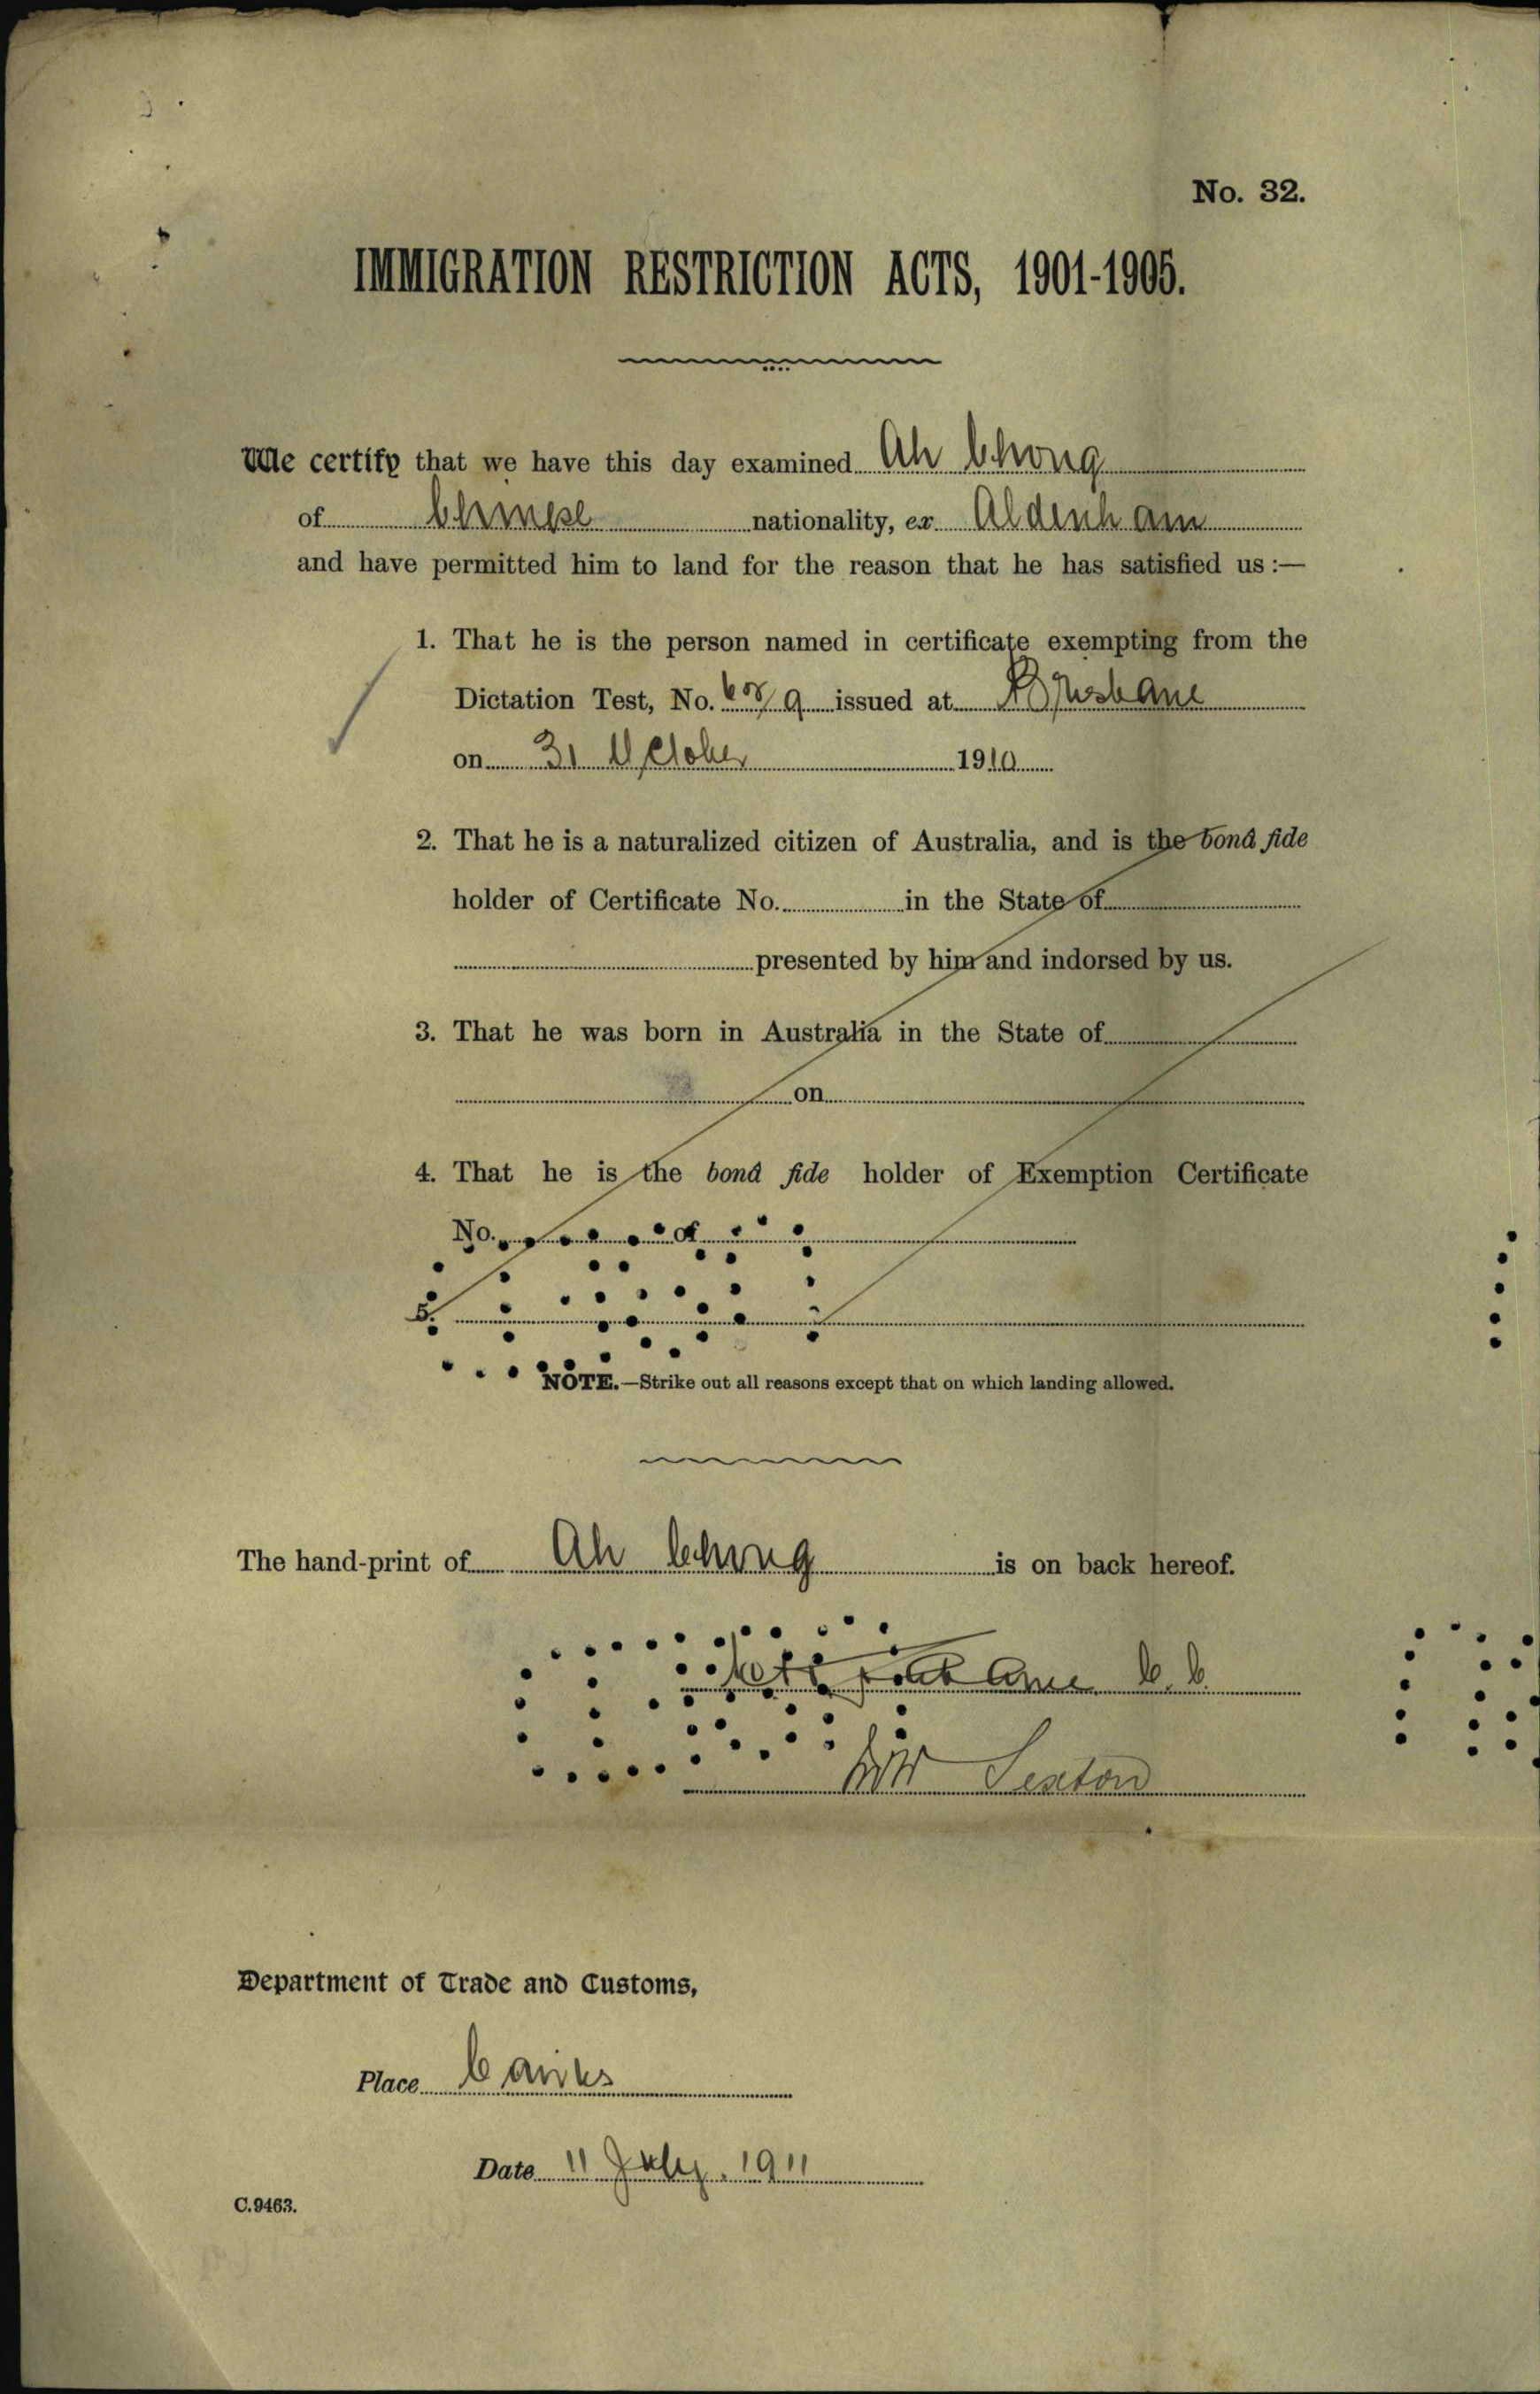 No. 32.
IMMIGRATION RESTRICTION ACTS, 1901-1905.
We certify that we have this day examined Ah Chong
of Chinese nationality, ex Aldenham
and have permitted him to land for the reason that he has satisfied us :—
1. That he is the person named in certificate exempting from the
Dictation Test, No. issued at Brisbane
on 31 October 1910
2. That he is a naturalized citizen of Australia, and is the bonâ fide
holder of Certificate No. in the State of
presented by him and indorsed by us.
3. That he was born in Australia in the State of
on
4. That he is the bonâ fide holder of Exemption Certificate
No. of
5.
NOTE.—Strike out all reasons except that on which landing allowed.
The hand-print of Ah Chong is on back hereof.
Sexton
Department of Trade and Customs,
Place Cairns
Date 11 July. 1911
C.9463.